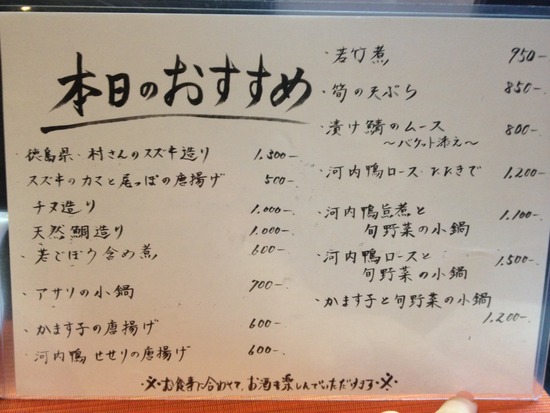 本日のおすすめ
徳島県・村さんのスズキ造り 1,300-
スズキのカマと尾っぽの唐揚げ 500-
チヌ造り 1,000-
天然鯛造り 1,000-
・若ごぼう含め煮 600-
・アサリの小鍋 700-
・かます子の唐揚げ 600-
・河内鴨せせりの唐揚げ 600-
・若竹煮 950-
・筍の天ぷら 850-
・漬け鯖のムース 800-
〜バケット添え〜
・河内鴨ロース・たたきで 1,200-
・河内鴨旨煮と 1,100-
旬野菜の小鍋
・河内鴨ロースと 1,500-
旬野菜の小鍋
・かます子と旬野菜の小鍋
1,200-
・※・お食事に合わせて、お酒も楽しんでいただけます・※・